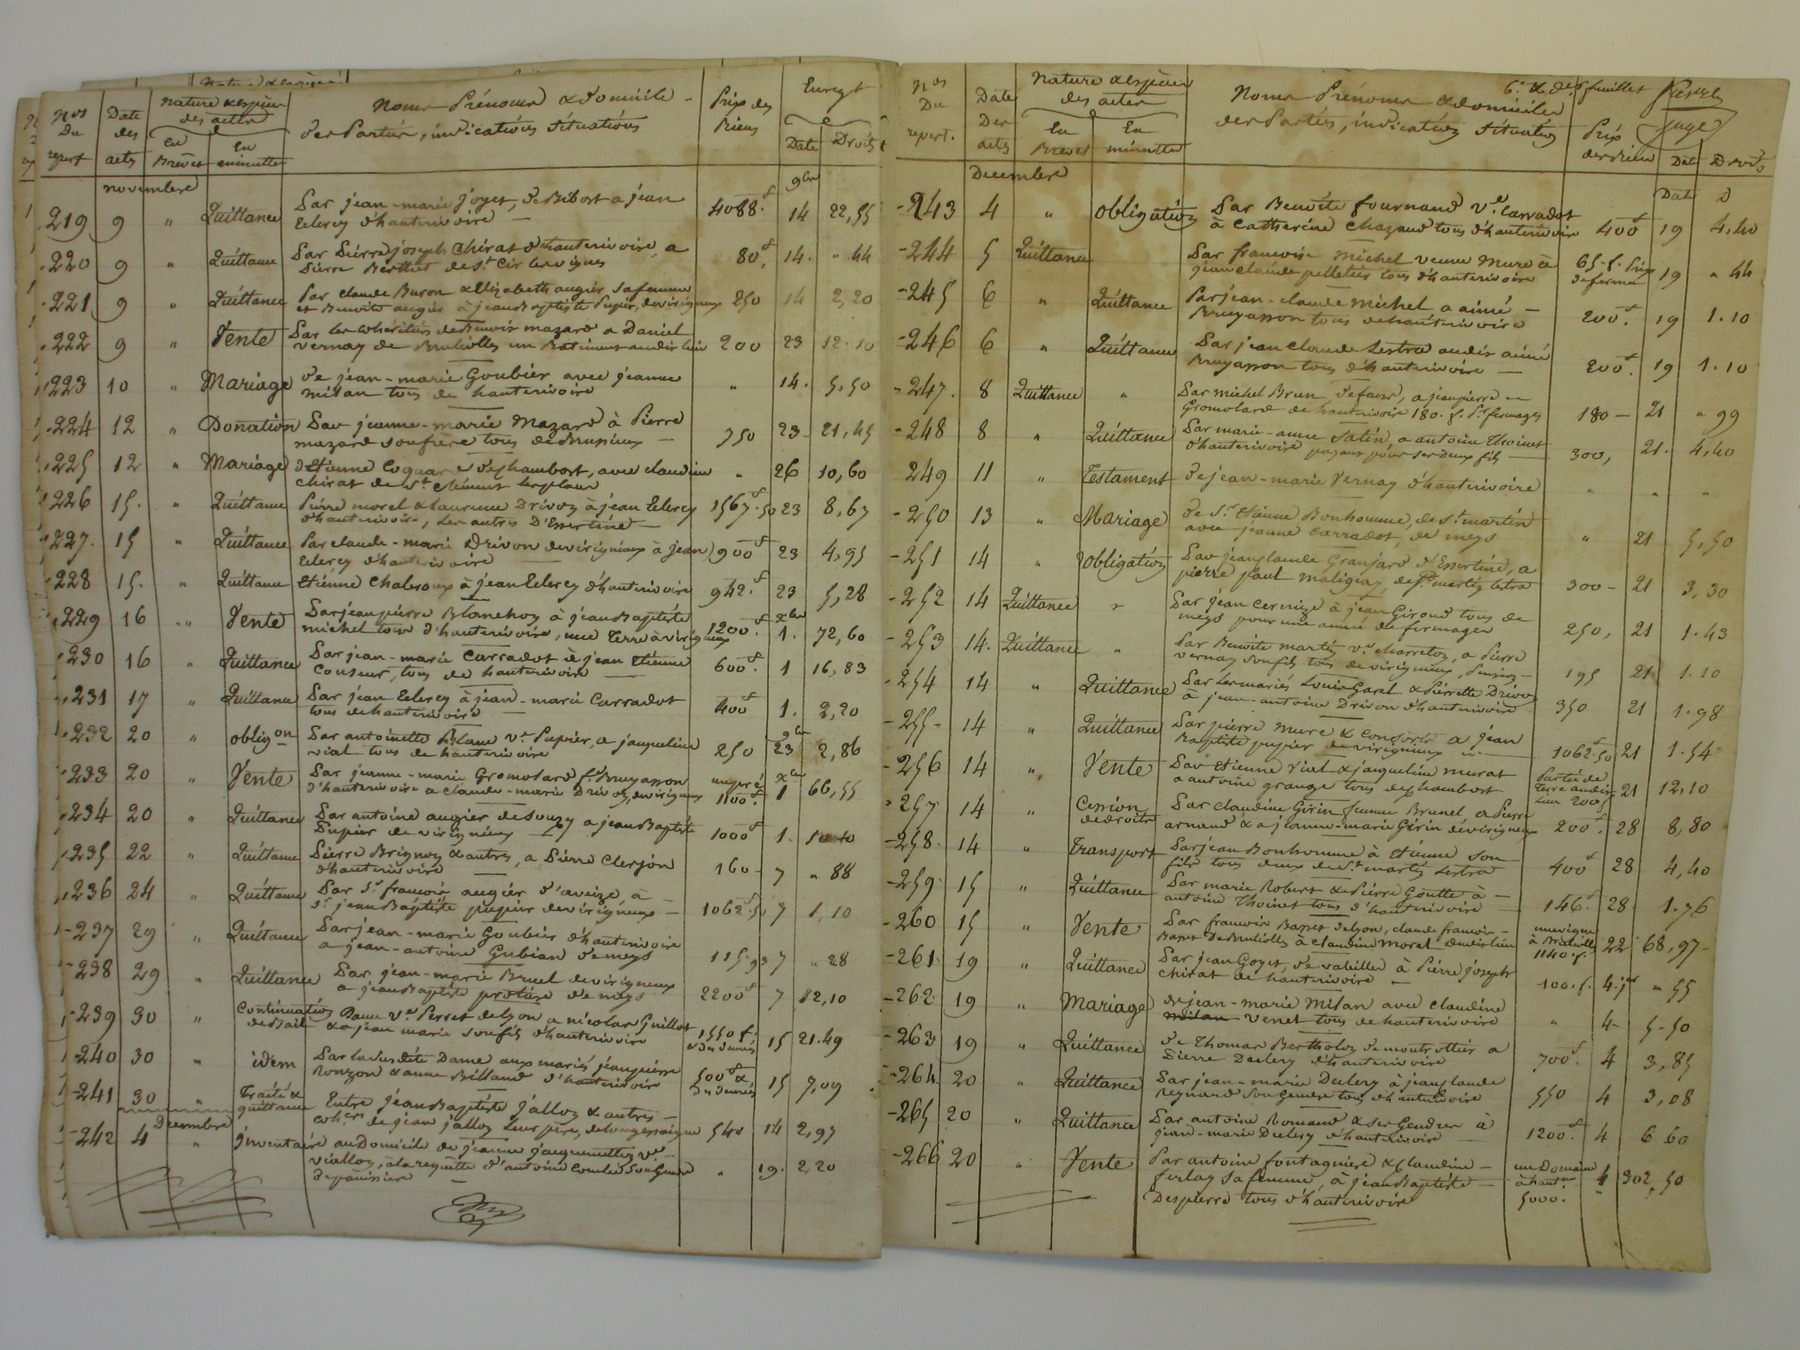 Nos Du repert
Date des actes
nature & espèces des actes
En Brevet
En minutte
Noms Prénoms & Domicile
des Parties, indications Situations
Prix des Biens
Enregt
Date
Droits
novembre
9bre
219 9 " Quittance Par jean-marie joyet, de Bibost a jean 4088.f 14 22,55
Eclercy d'hauterivoire
220 9 " Quittance Par Pierre joseph Chirat d'hauterivoire, a 80f. 14. " 44
Pierre Berthet de St Cir les vignes
221 9 " Quittance Par Claude Buron & Elizabeth augier sa femme 250 14 2,20
et Benoite augier à jean Baptiste Pupier, de virigneux
222 9 " Vente Par les cohéritiers de Benoit mazard a Daniel 200 23 12.10
vernay de Bruliolles un Batiment audit lieu
223 10 " Mariage de jean-marie Goubier avec jeanne " 14. 5,50
milan tous de hauterivoire
224 12 " Donation Par jeanne-marie Mazard à Pierre 750 23 21,45
mazard son frère tous de Brussieux
225 12 " Mariage d'Etienne Coquard deschambost, avec claudine " 26 10,60
Chirat de St Clément les places
226 15. " Quittance Pierre morel & laurence Drivon à jean Eclercy 1567f.50 23 8,67
d'hauterivoire, les autres D'Essertine
227. 15 " Quittance Par claude-marie Drivon de virigneux à jean 900f 23 4,95
Eclercy d'hauterivoire
228 15. " Quittance Etienne Chabroux à jean Eclercy d'hauterivoire 942.f 23 5,28
229 16 " Vente Par jean pierre Blanchon à jean Baptiste 1200f. xbre 1. 72,60
michel tous d'hauterivoire, une terre à virigneux
230 16 " Quittance Par jean-marie Carradot à jean Etienne 600f. 1 16,83
Couseur, tous de hauterivoire
231 17 " Quittance Par jean Eclercy à jean-marie Carradot 400f 1. 2,20
tous de hauterivoire
232 20 " obligon Par antoinette Blanc ve Pupier, a jacqueline 250 9bre 23 2,86
vial tous de hauterivoire
233 20 " Vente Par jeanne-marie Gromolard fe Bruyasson un pré xbre
d'hauterivoire a claude-marie Drivon, de virigneux 1100f. 1 66,55
234 20 " Quittance Par antoine augier de Souzy a jean Baptiste 1000f 1. 10 10
Pupier de virigneux
235 22 " Quittance Pierre Brignon & autres, a Pierre Clerjon 160 7 " 88
d'hauterivoire
236 24 " Quittance Par Sr françois augier d'aveize a 1062f.50 7 1,10
Sr jean Baptiste pupier de virigneux
237 29 " Quittance Par jean-marie Goubier d'hauterivoire 115.93 7 " 28
a jean-antoine Gubian de meys
238 29 " Quittance Par jean-marie Bruel de virigneux 2200f 7 12,10
a jean Baptiste protière de meys
239 30 " Continuation Dame ve Perret de lyon a nicolas Guillot 1550f. 15 21.49
de Bail & a jean marie son fils d'hauterivoire
240 30 " idem Par la susdite Dame aux mariés jean pierre 500f & 15 7,09
Ronzon & anne Billand d'hauterivoire
241 30 " Traité & quittance Entre jean Baptiste jalloz & autres 540 14 2,97
cohers de jean jalloz leur père, de longessaigne
Décembre
242 4 " inventaire au Domicile de jeanne jacquemettton ve " 19. 2,20
vialloz, à la requette d'antoine Combe son Gendre
Nos Du repert.
Date Des actes
nature & espèces des actes
En Brevet
En minutte
6e & der feuillet
Noms Prénoms & domiciles
des Parties, indication Situation
Prix des Biens
juge
Date
Droits
Decembre
243 4 " Obligation Par Benoite fournand ve Carradot 400f 19 4,40
à Catherine Chazaud tous d'hauterivoire
244 5 Quittance Par françoise michel veuve Mure à 65.f. Prix 19 " 44
jean claude pelletier tous d'hauterivoire de ferme
245 6 " Quittance Par jean-claude Michel a aimé 200f. 19 1.10
Bruyasson tous de hauterivoire
246 6 " Quittance Par jean claude Lestra audit aimé 200f. 19 1.10
Bruyasson tous d'hauterivoire
247. 8 Quittance " Par michel Brun, a jean pierre 180 21 " 99
Gromolard de hauterivoire 180.f. pr fermages
248 8 " Quittance Par marie-anne Satin, a antoine Thoinet 300, 21. 4,40
d'hauterivoire payant pour ses deux fils
249 11 " Testament de jean-marie Vernay d'hauterivoire " " "
250 13 " Mariage de Sr Etienne Bonhomme, de St martin " 21 5,50
avec jeanne Carradot, de meys
251 14 " Obligation Par jean claude Granjard d'Essertine, a 300 21 3,30
pierre paul maligeay de St martin lestra
252 14 Quittance " Par jean Cernize à jean Giroud tous de 250, 21 1.43
meys pour une année de fermages
253 14. Quittance " Par Benoite martin ve charreton, a Pierre 195 21 1.10
vernay son fils tous de virigneux
254 14 " Quittance Par les mariés Louis Garel & Pierrette Drivon 350 21 1.98
à jean-antoine Drivon d'hauterivoire
255 14 " Quittance Par pierre Mure & Consorts a jean 1062f.50 21 1.54
Baptiste pupier de virigneux
256 14 " Vente Par Etienne Vial & jacqueline murat Partie de
a antoine grange tous deschambost terre audit lieu 200f 21 12,10
257 14 " Cession de droits Par claudine Girin femme Brunel a Pierre 200f. 28 8,80
arnaud & a jeanne-marie Girin de virigneux
258. 14 " Transport Par jean Bonhomme à Etienne son 400f 28 4,40
fils tous deux de St martin Lestra
259 15 " Quittance Par marie Robert & Pierre Goutte à 146f. 28 1.76
antoine Thoinet tous d'hauterivoire
260 15 " Vente Par françois Basset de lyon, claude françois une vigne
Basset De Brulliolles à claudine morel dudit lieu 1140f. 22 68,97
261 19 " Quittance Par jean Goyet, de valeilles à Pierre joseph 100.f. 4.jer " 55
chirat de hauterivoire
262 19 " Mariage de jean-marie milan avec claudine " 4 5-50
milan venet tous de hauterivoire
263 19 " Quittance de Thomas Bertholon de montrottier a 700f. 4 3,85
Pierre Declery d'hauterivoire
264 20 " Quittance Par jean-marie Declery à jean claude 550 4 3,08
Reynard son Gendre tous d'hauterivoire
265 20 " Quittance Par antoine Romand & ses Gendres à 1200f. 4 6 60
jean-marie Declery d'hauterivoire
266 20 " Vente Par antoine fontagnière & Claudine un Domaine
ferlay sa femme, à jean Baptiste à haute 4 302,50
Despierre tous d'hauterivoire 5000.